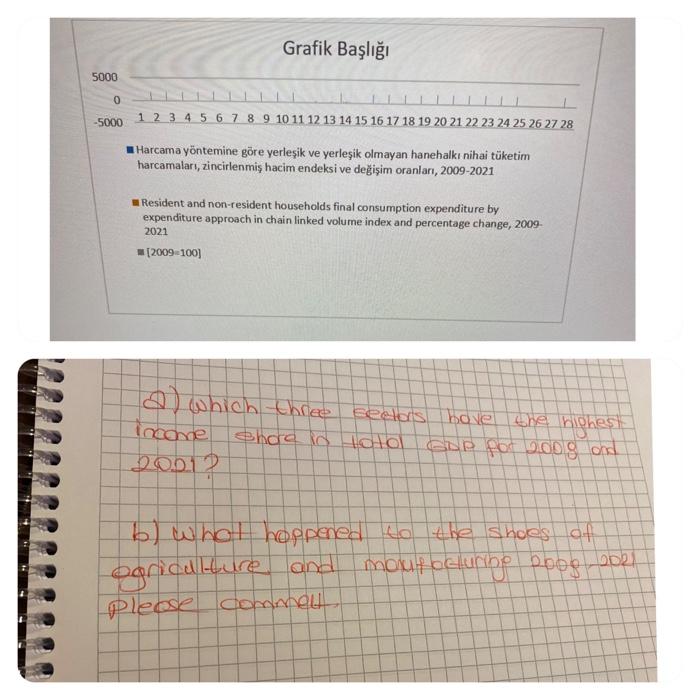 Grafik Başlığı
5000
0
-5000
1 2 3 4 5 6 7 8 9 10 11 12 13 14 15 16 17 18 19 20 21 22 23 24 25 26 27 28
Harcama yöntemine göre yerleşik ve yerleşik olmayan hanehalkı nihai tüketim
harcamaları, zincirlenmiş hacim endeksi ve değişim oranları, 2009-2021
Resident and non-resident households final consumption expenditure by
expenditure approach in chain linked volume index and percentage change, 2009-
2021
[2009=100]
a) which three sectors have the highest
income share in total GDP for 2009 and
2021?
b) what happened to the shares of
agriculture and moufacturing 2009-2021
please commet.